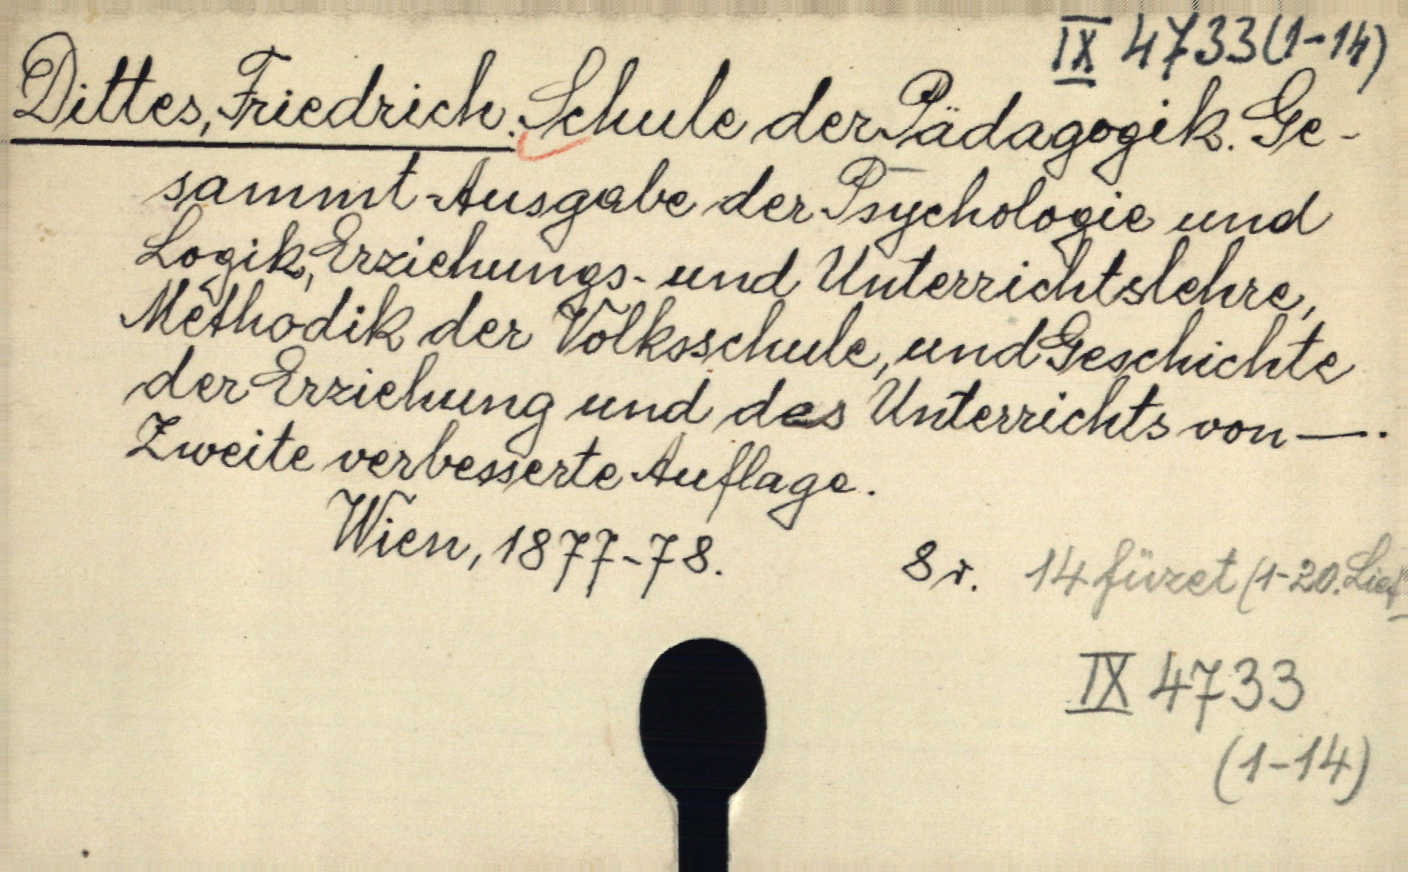 IX 4733(1-14)
Dittes, Friedrich. Schule der Pädagogik. Ge-
sammt-Ausgabe der Psychologie und
Logik, Erziehungs- und Unterrichtslehre,
Methodik der Volksschule, und Geschichte
der Erziehung und des Unterrichts von —.
Zweite verbesserte Auflage.
Wien, 1877-78. 8r. 14 füzet (1-20. Lief
IX 4733
(1-14)